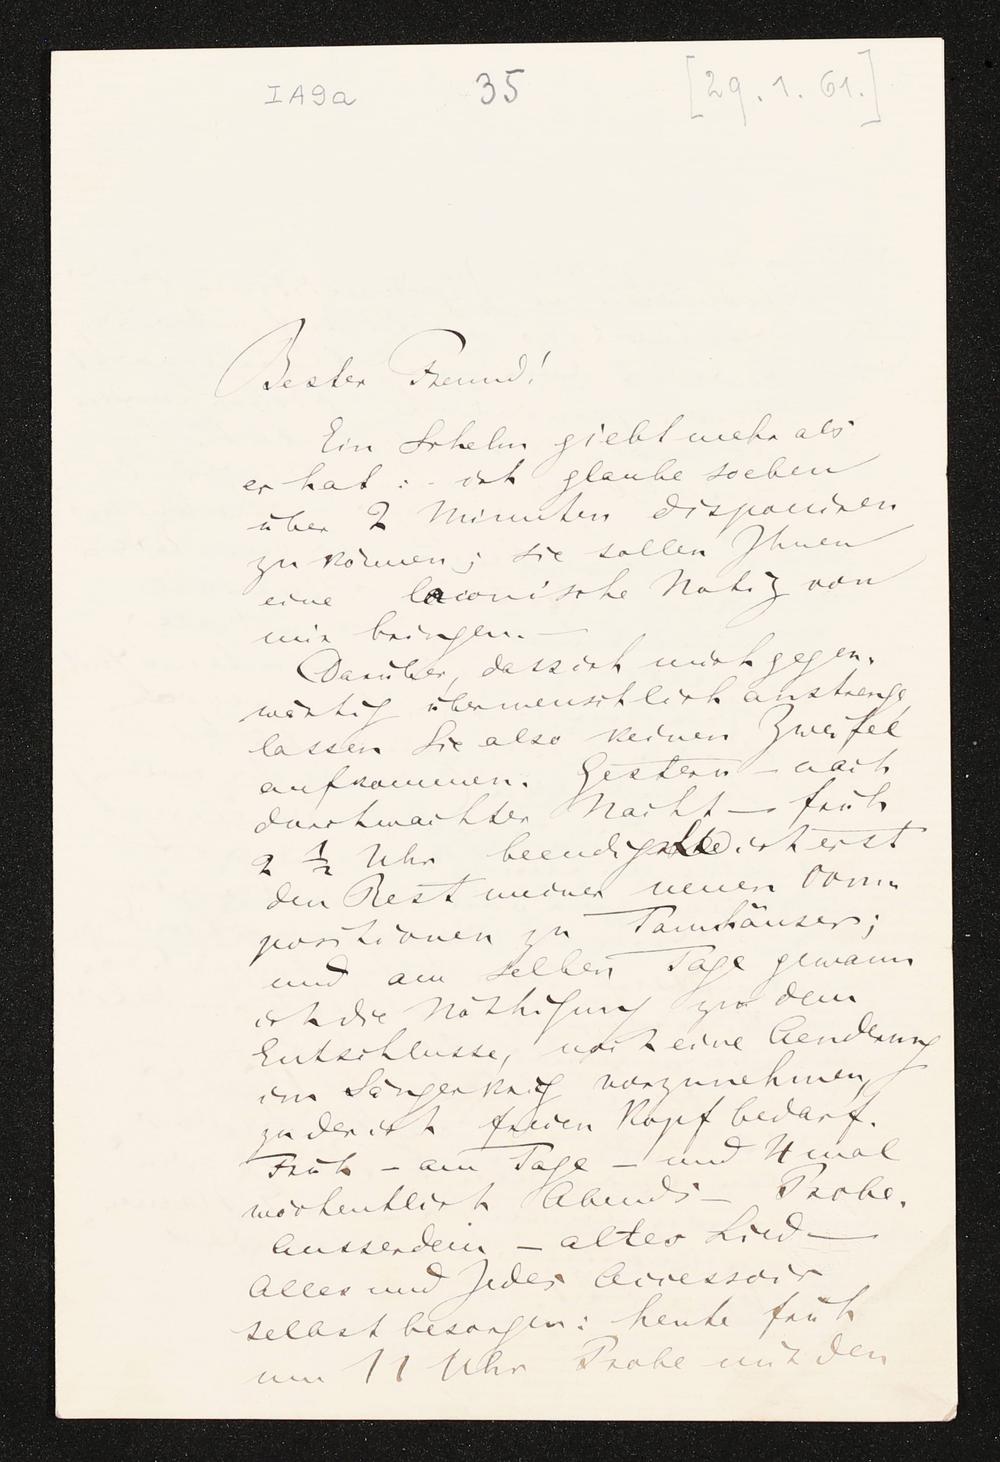 IA9a 35 [29.1.61.]
Bester Freund!
Ein Schelm giebt mehr als
er hat: - ich glaube soeben
über 2 Minuten disponiren
zu können; sie sollen Ihnen
eine laconische Notiz von
mir bringen. —
Darüber, dass ich mich gegen-
wärtig übermenschlich anstrenge,
lassen Sie also keinen Zweifel
aufkommen. Gestern — nach
durchwachter Nacht — früh
2 1/2 Uhr beendigte ich erst
den Rest meiner neuen Com-
positionen zu Tannhäuser;
und am selben Tage gewann
ich die Nöthigung zu dem
Entschlusse, noch eine Aenderung
im Sängerkrieg vorzunehmen,
zu der ich freien Kopf bedarf.
Früh — am Tage — und 4 mal
wöchentlich Abends — Probe.
Ausserdem — altes Lied —
Alles und Jedes Accessoir
selbst besorgen: heute früh
um 11 Uhr Probe mit den